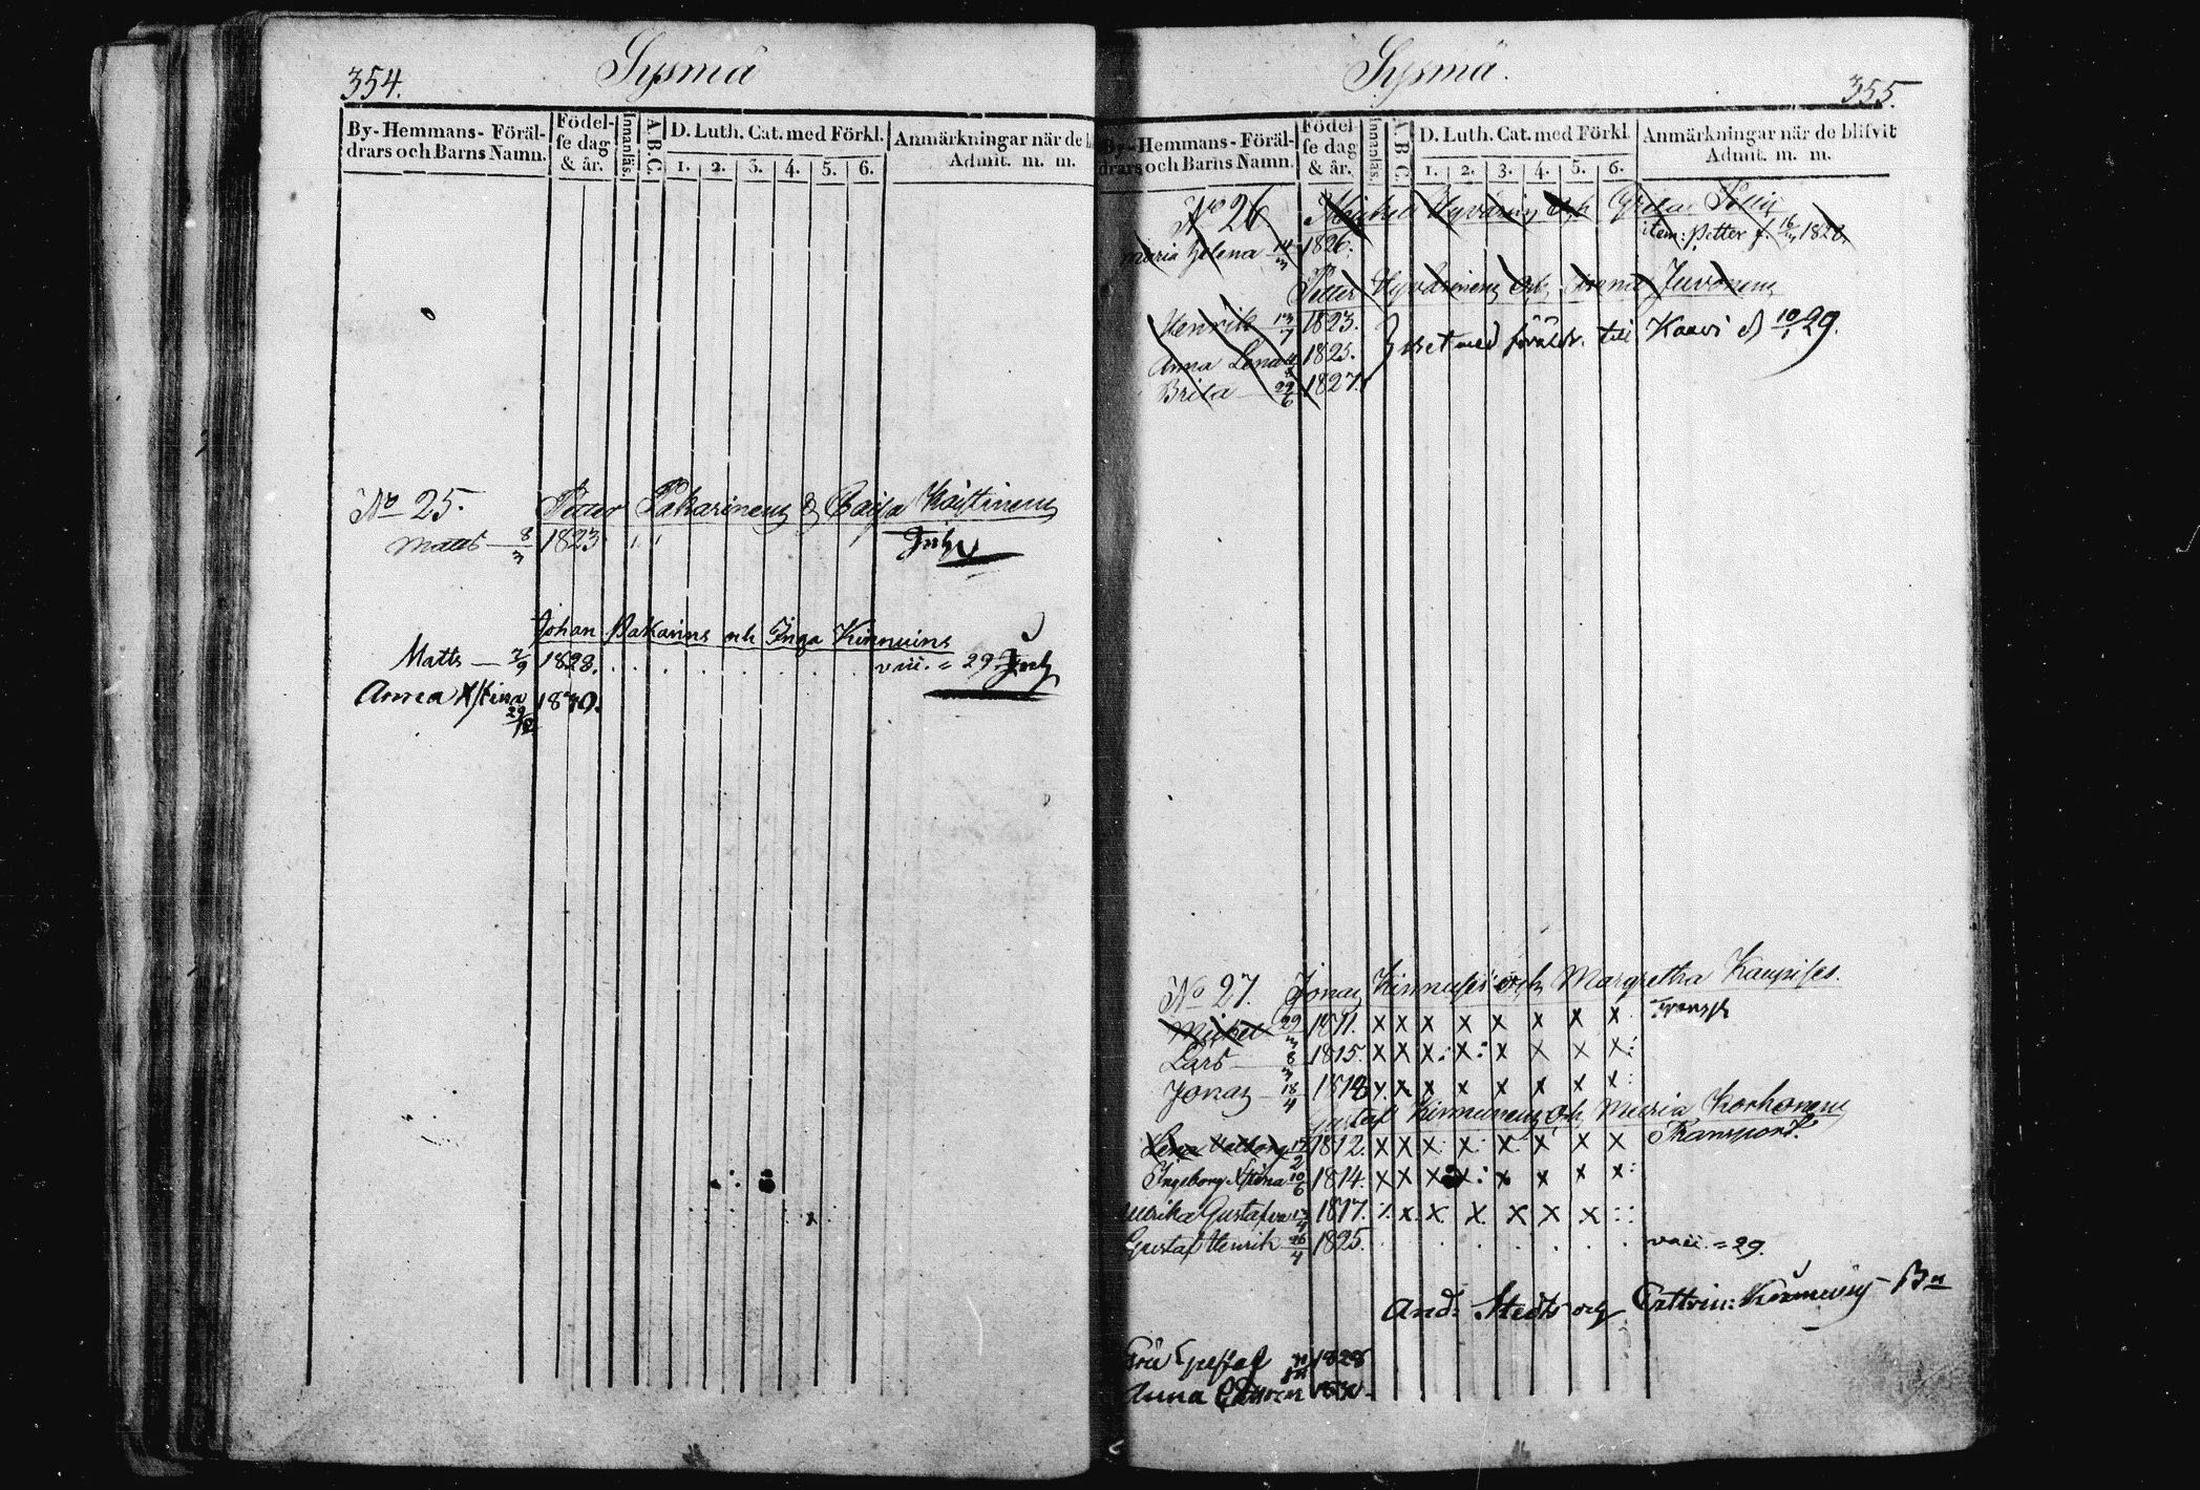 354.
Sysmä
By-Hemmans-Föräl-
drars och Barns Namn.
Födel-
se dag
& år.
Innanläs.
A.B.C.
D. Luth. Cat. med Förkl.
1. 2. 3. 4. 5. 6.
Anmärkningar när de b
Admit. m. m.
No 25. Petter Pakarinen & Caisa
Matts 8/3 1823
Johan Pakarins och Inga Kinnuins
Matts 2/9 1828. . . . . . . . vaii. = 29.
Anna Xstina 1830.
29/12
Sysmä.
355.
By-Hemmans-Föräl-
drars och Barns Namn.
Födel-
se dag
& år.
Innanläs.
A.B.C.
D. Luth. Cat. med Förkl.
1. 2. 3. 4. 5. 6.
Anmärkningar när de blifvit
Admit. m. m.
No 26 Michel Hyvärin och Greta
item: Petter f. 1828.
Maria Helena 1826.
Petter Hyvärinen och Anna Juvonen
Henrik 13/7 1823.
med föräldr. till Kaavi d 10/1 29.
Anna Lena 1825.
Brita 22/6 1827.
No 27. Jonas och Margretha
Michel 29 1811. x x x x x x x x Transp
Lars 8/3 1815. x x x: x: x x x x:
Jonas 18/4 x x x x x x x x:
Gustaf Kinnunen och Maria Korhonen
Lena 1812. x x x x x x x x Transport.
Ingeborg Xstina 10/6 1814. x x x x: x x x x:
Ulrika Gustafva 1817. x. x. x. x x x
Gustaf Henrik 26/4 1825. . . . . . vaii. = 29.
And: och
Gustaf 1828
Anna